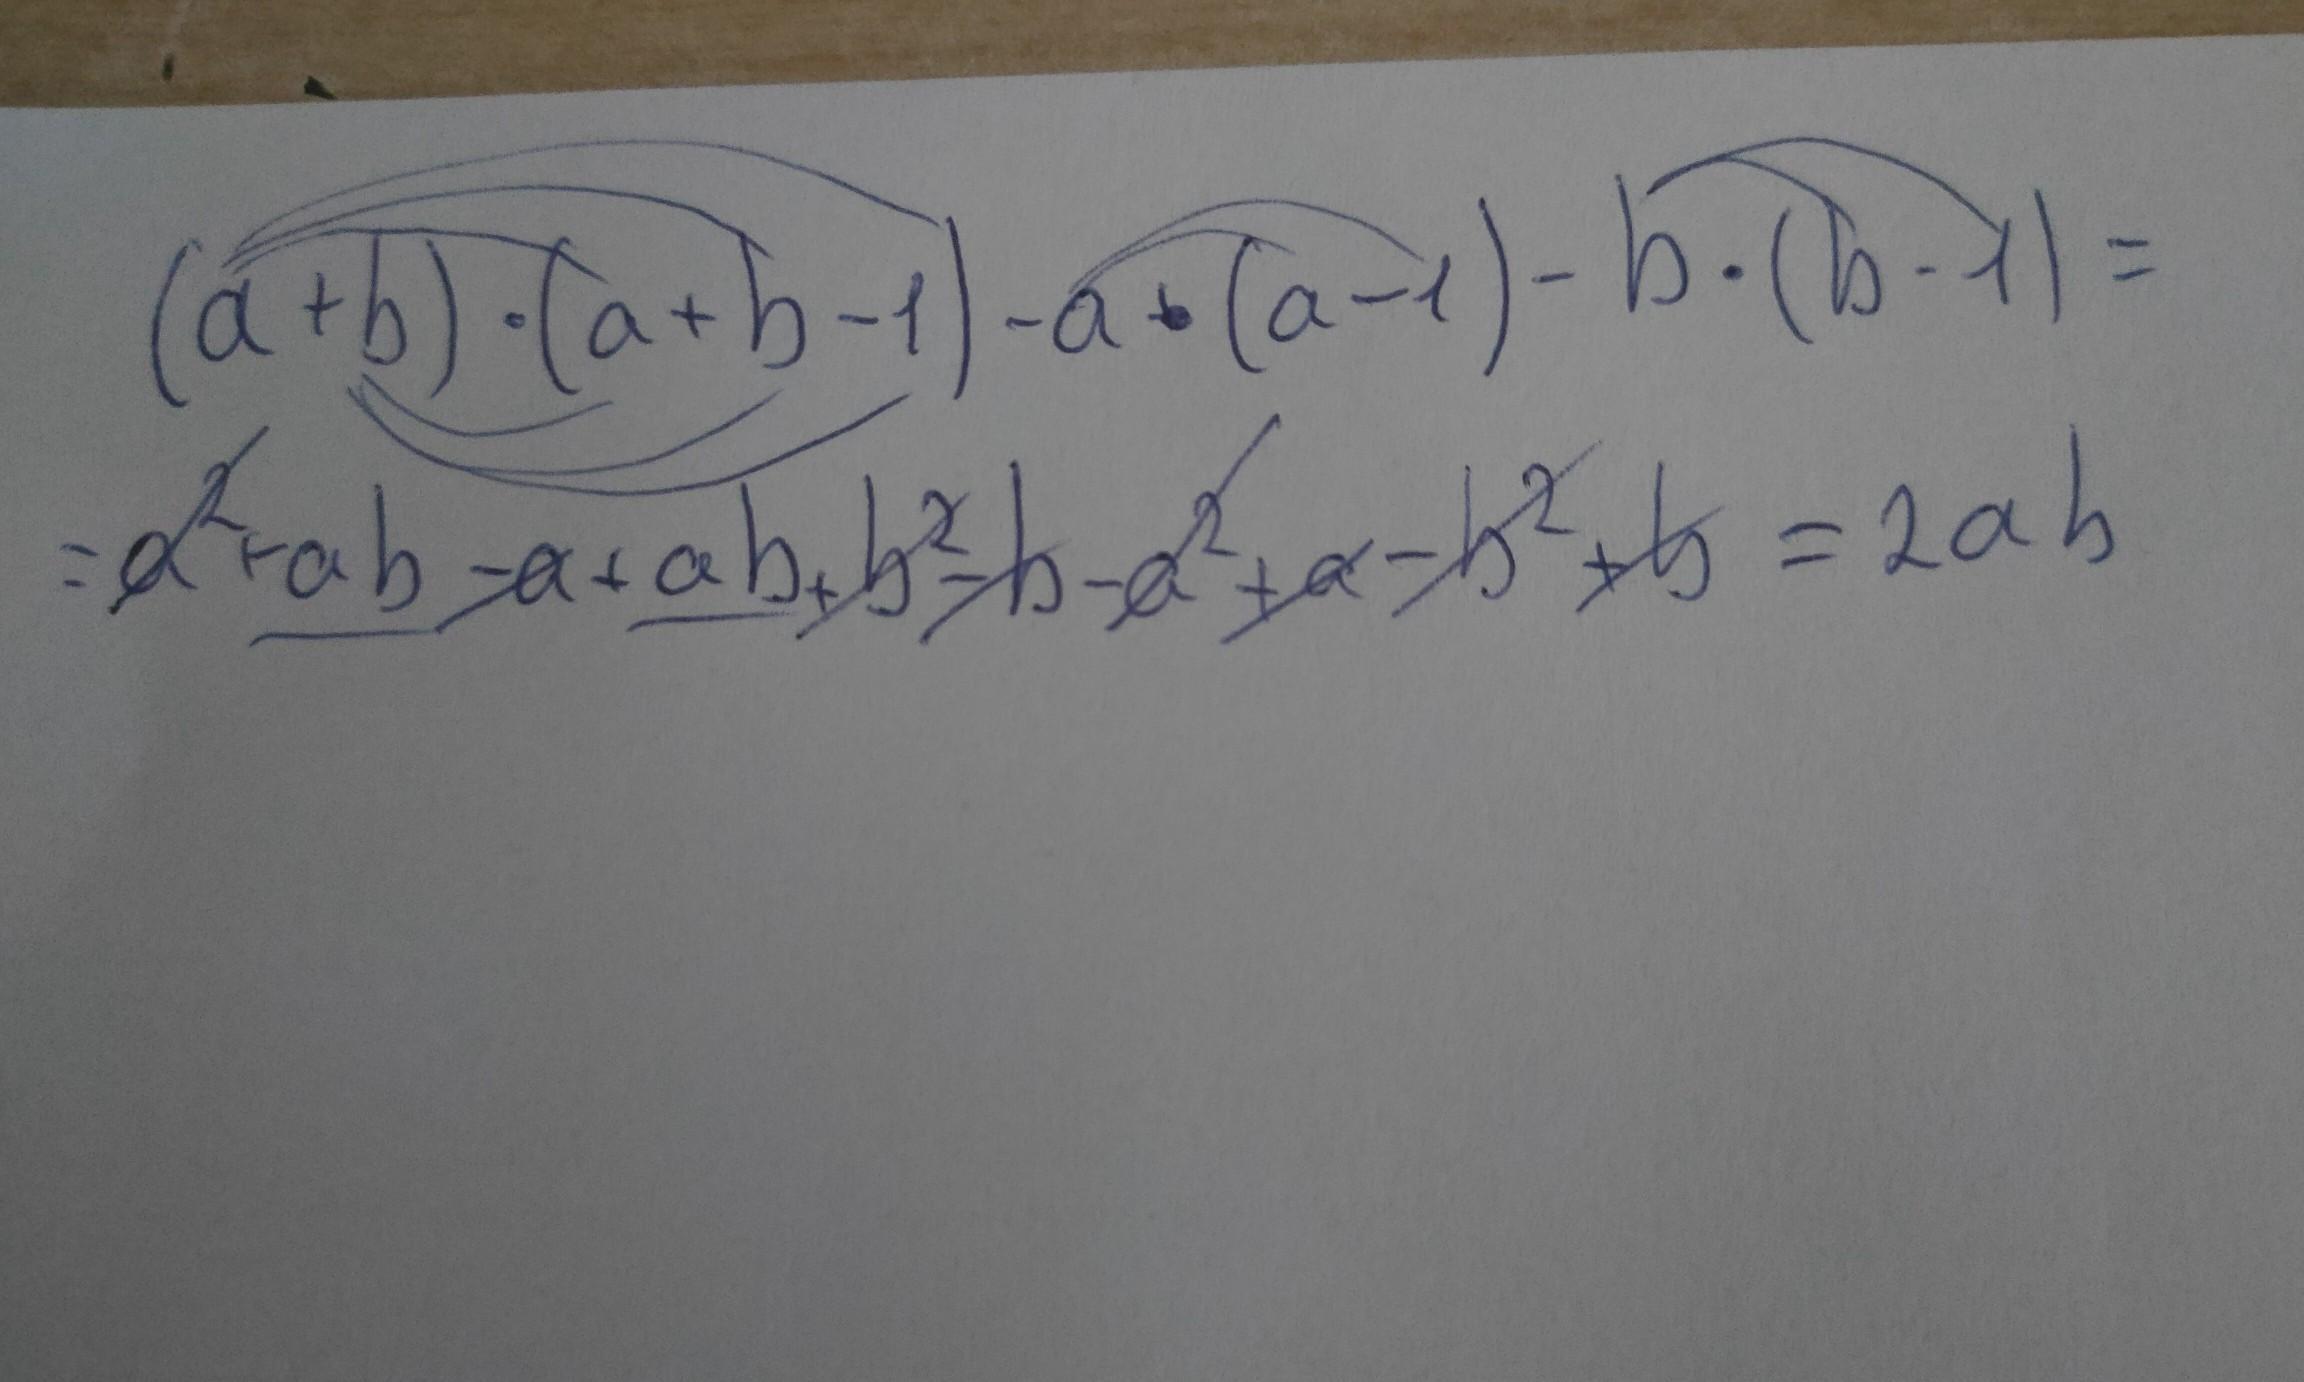 (a+b)·(a+b-1)-a·(a-1)-b·(b-1)=
=a²+ab-a+ab+b²-b-a²+a-b²+b=2ab